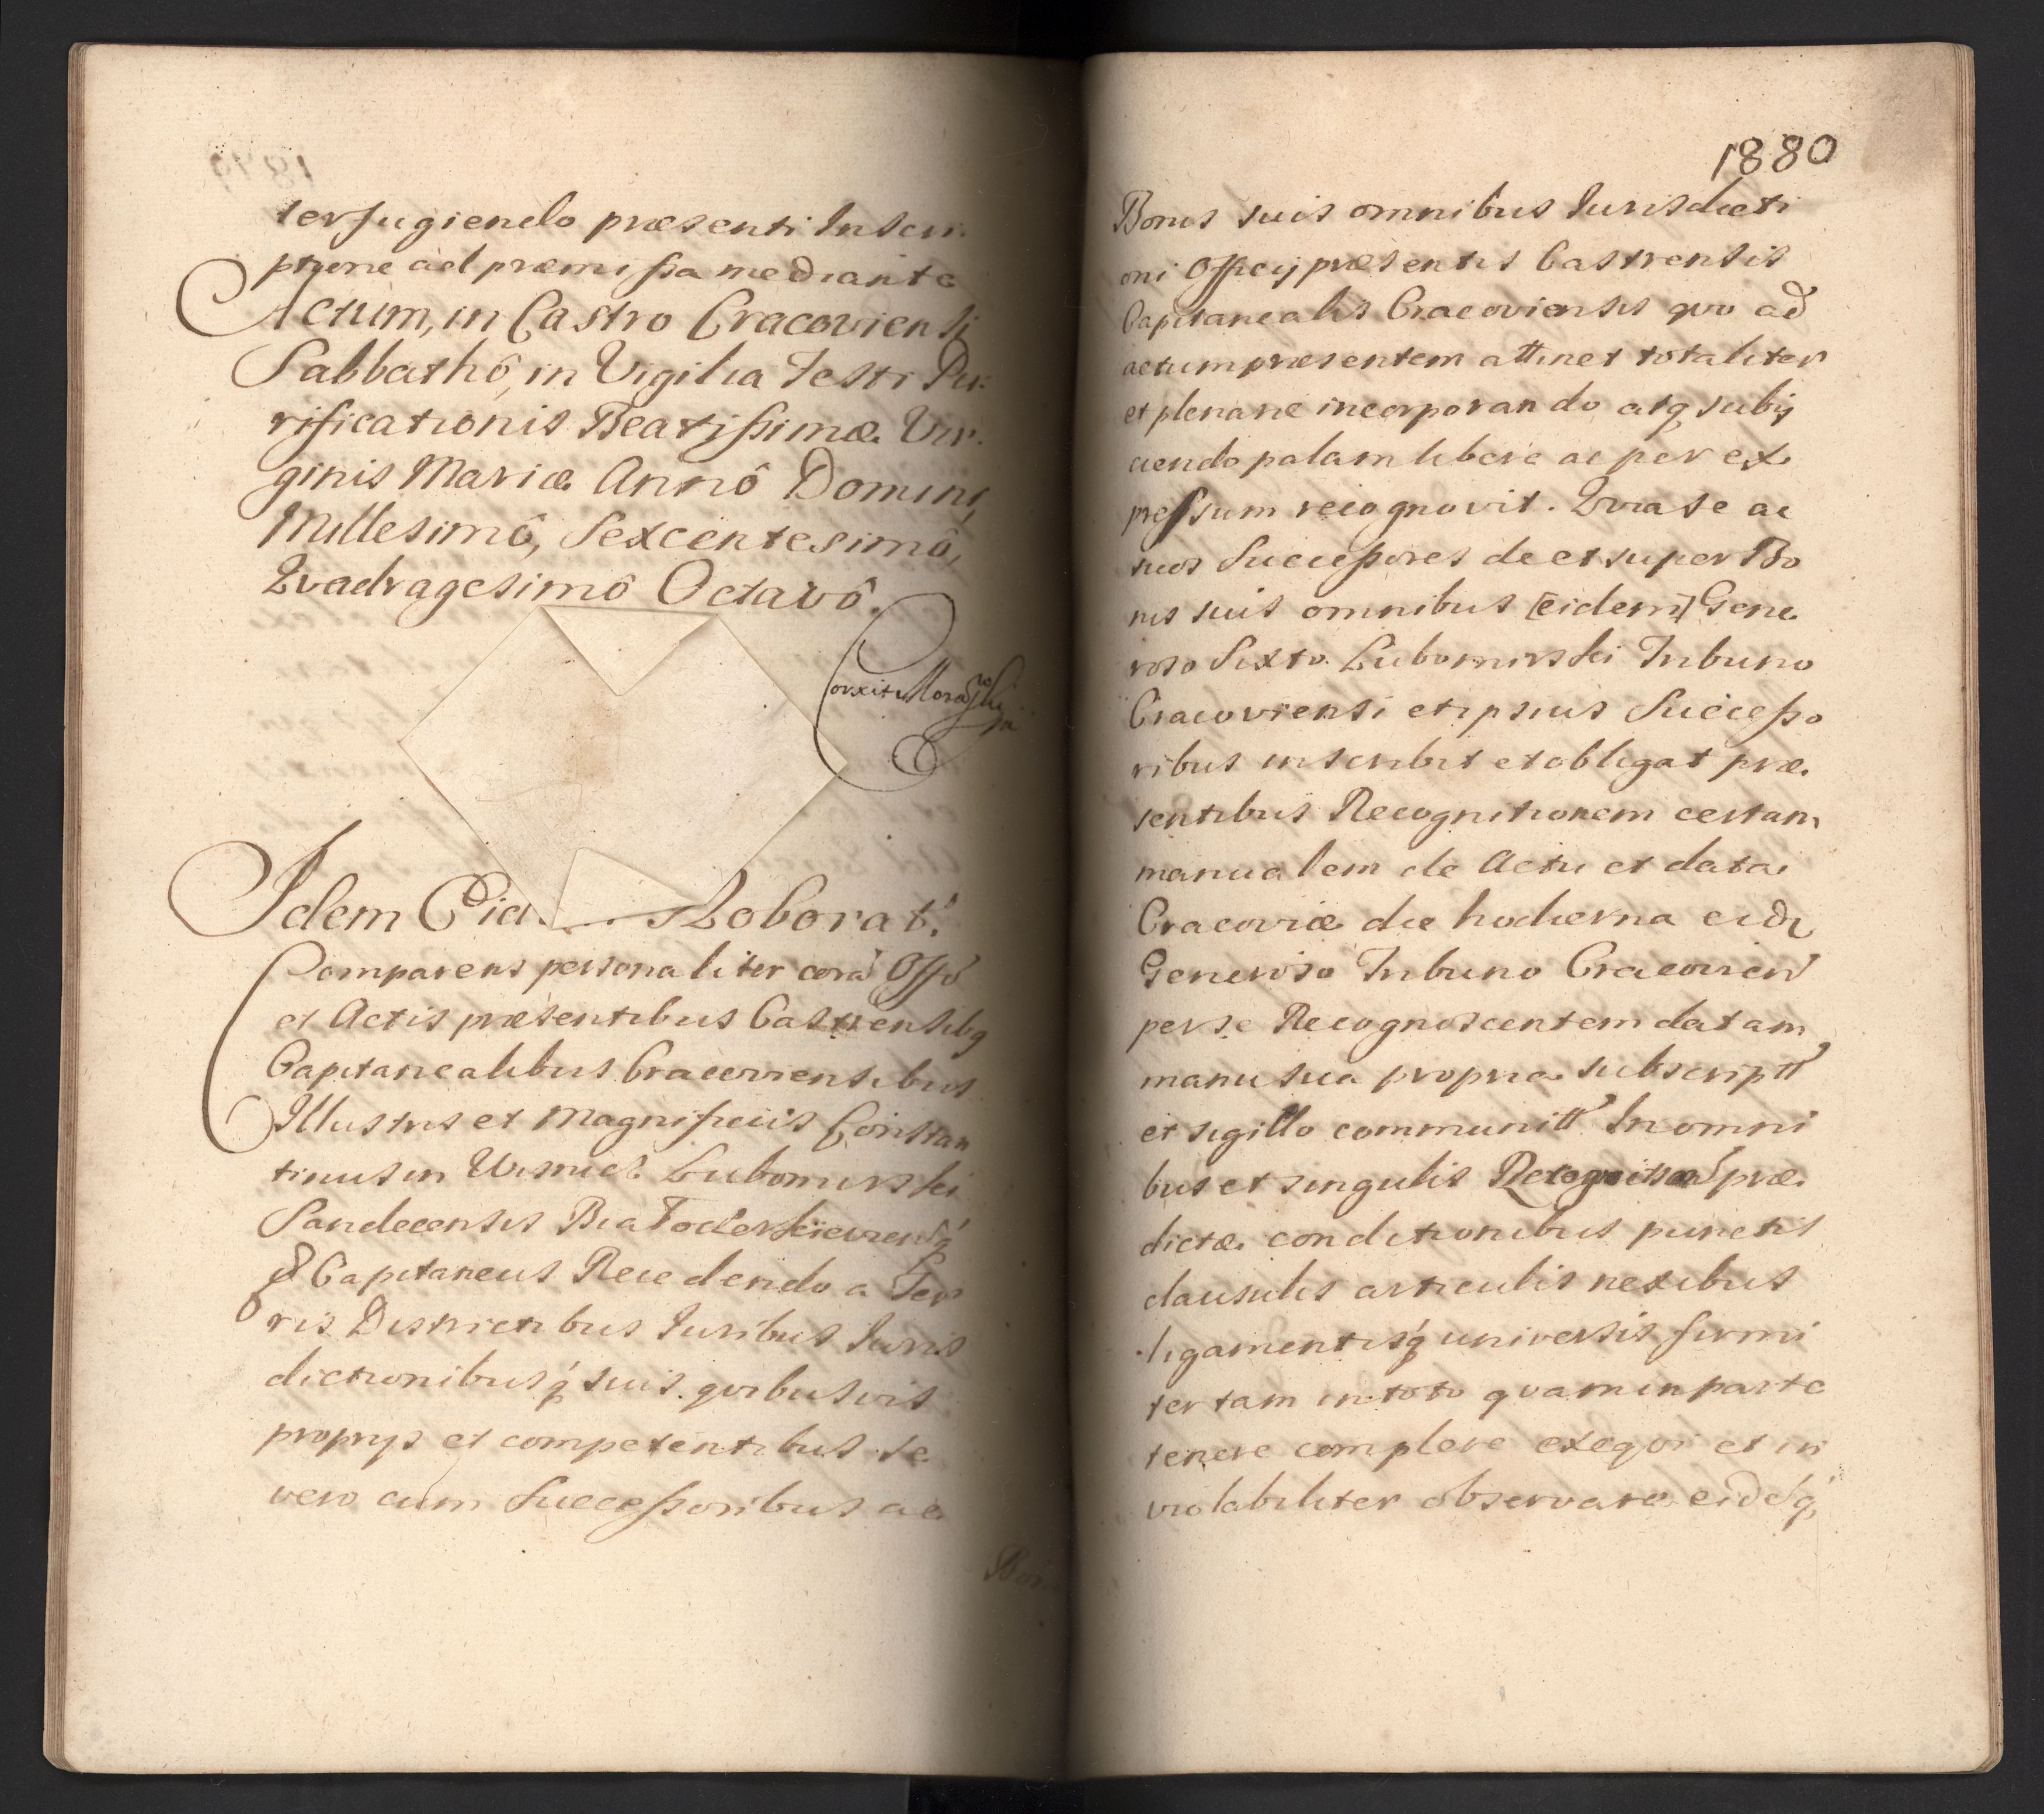 terfugiendo præsenti Inscri
ptione ad præmissa mediante
Actum, in Castro Cracoviensi
Sabbathô, in Vigilia Festi Pu:
rificationis Beatissimæ Vir:
ginis Mariæ Annô Domini,
Millesimô, Sexcentesimô,
Qvadragesimô Octavô.
Idem Eid. Roborat.
Comparens personaliter corã Offõ
et Actis præsentibus Castrensibq
Capitanealibus Cracoviensibus
Illustris et Magnificus Constan
tinus in Wisnicz Lubomirski
Sandecensis Bia
& Capitaneus Recedendo a Ter
ris Districtibus Iuribus Iuris
dictionibusq suis qvibusvis
proprys et competentibus se
vero cum Successoribus ac
Bon
1880
Bonis suis omnibus Iurisdicti
oni Officij præsentis Castrensis
Capitanealis Cracoviensis qvo ad
actum præsentem attinet totaliter
et plenarie incorporando atq subij
ciendo palam libere ac per ex
pressum recognovit. Qvia se ac
suos Successores de et super Bo
nis suis omnibus [eidem] Gene
roso Sixto Lubomirski Tribuno
Cracoviensi et ipsius Successo
ribus inscribit et obligat præ
sentibus Recognitionem certam
manualem de Actu et data
Cracoviæ die hodierna eidq
Generoso Tribuno Cracovien
per se Recognoscentem datam
manu sua propria subscriptt
et sigillo communitt In omni
bus et singulis præ
dictæ conditionibus punctis
clausulis articulis nexibus
ligamentisq universis firmi
ter tam in toto qvam in parte
tenere complere exeqvi et in
violabiliter observare eidq